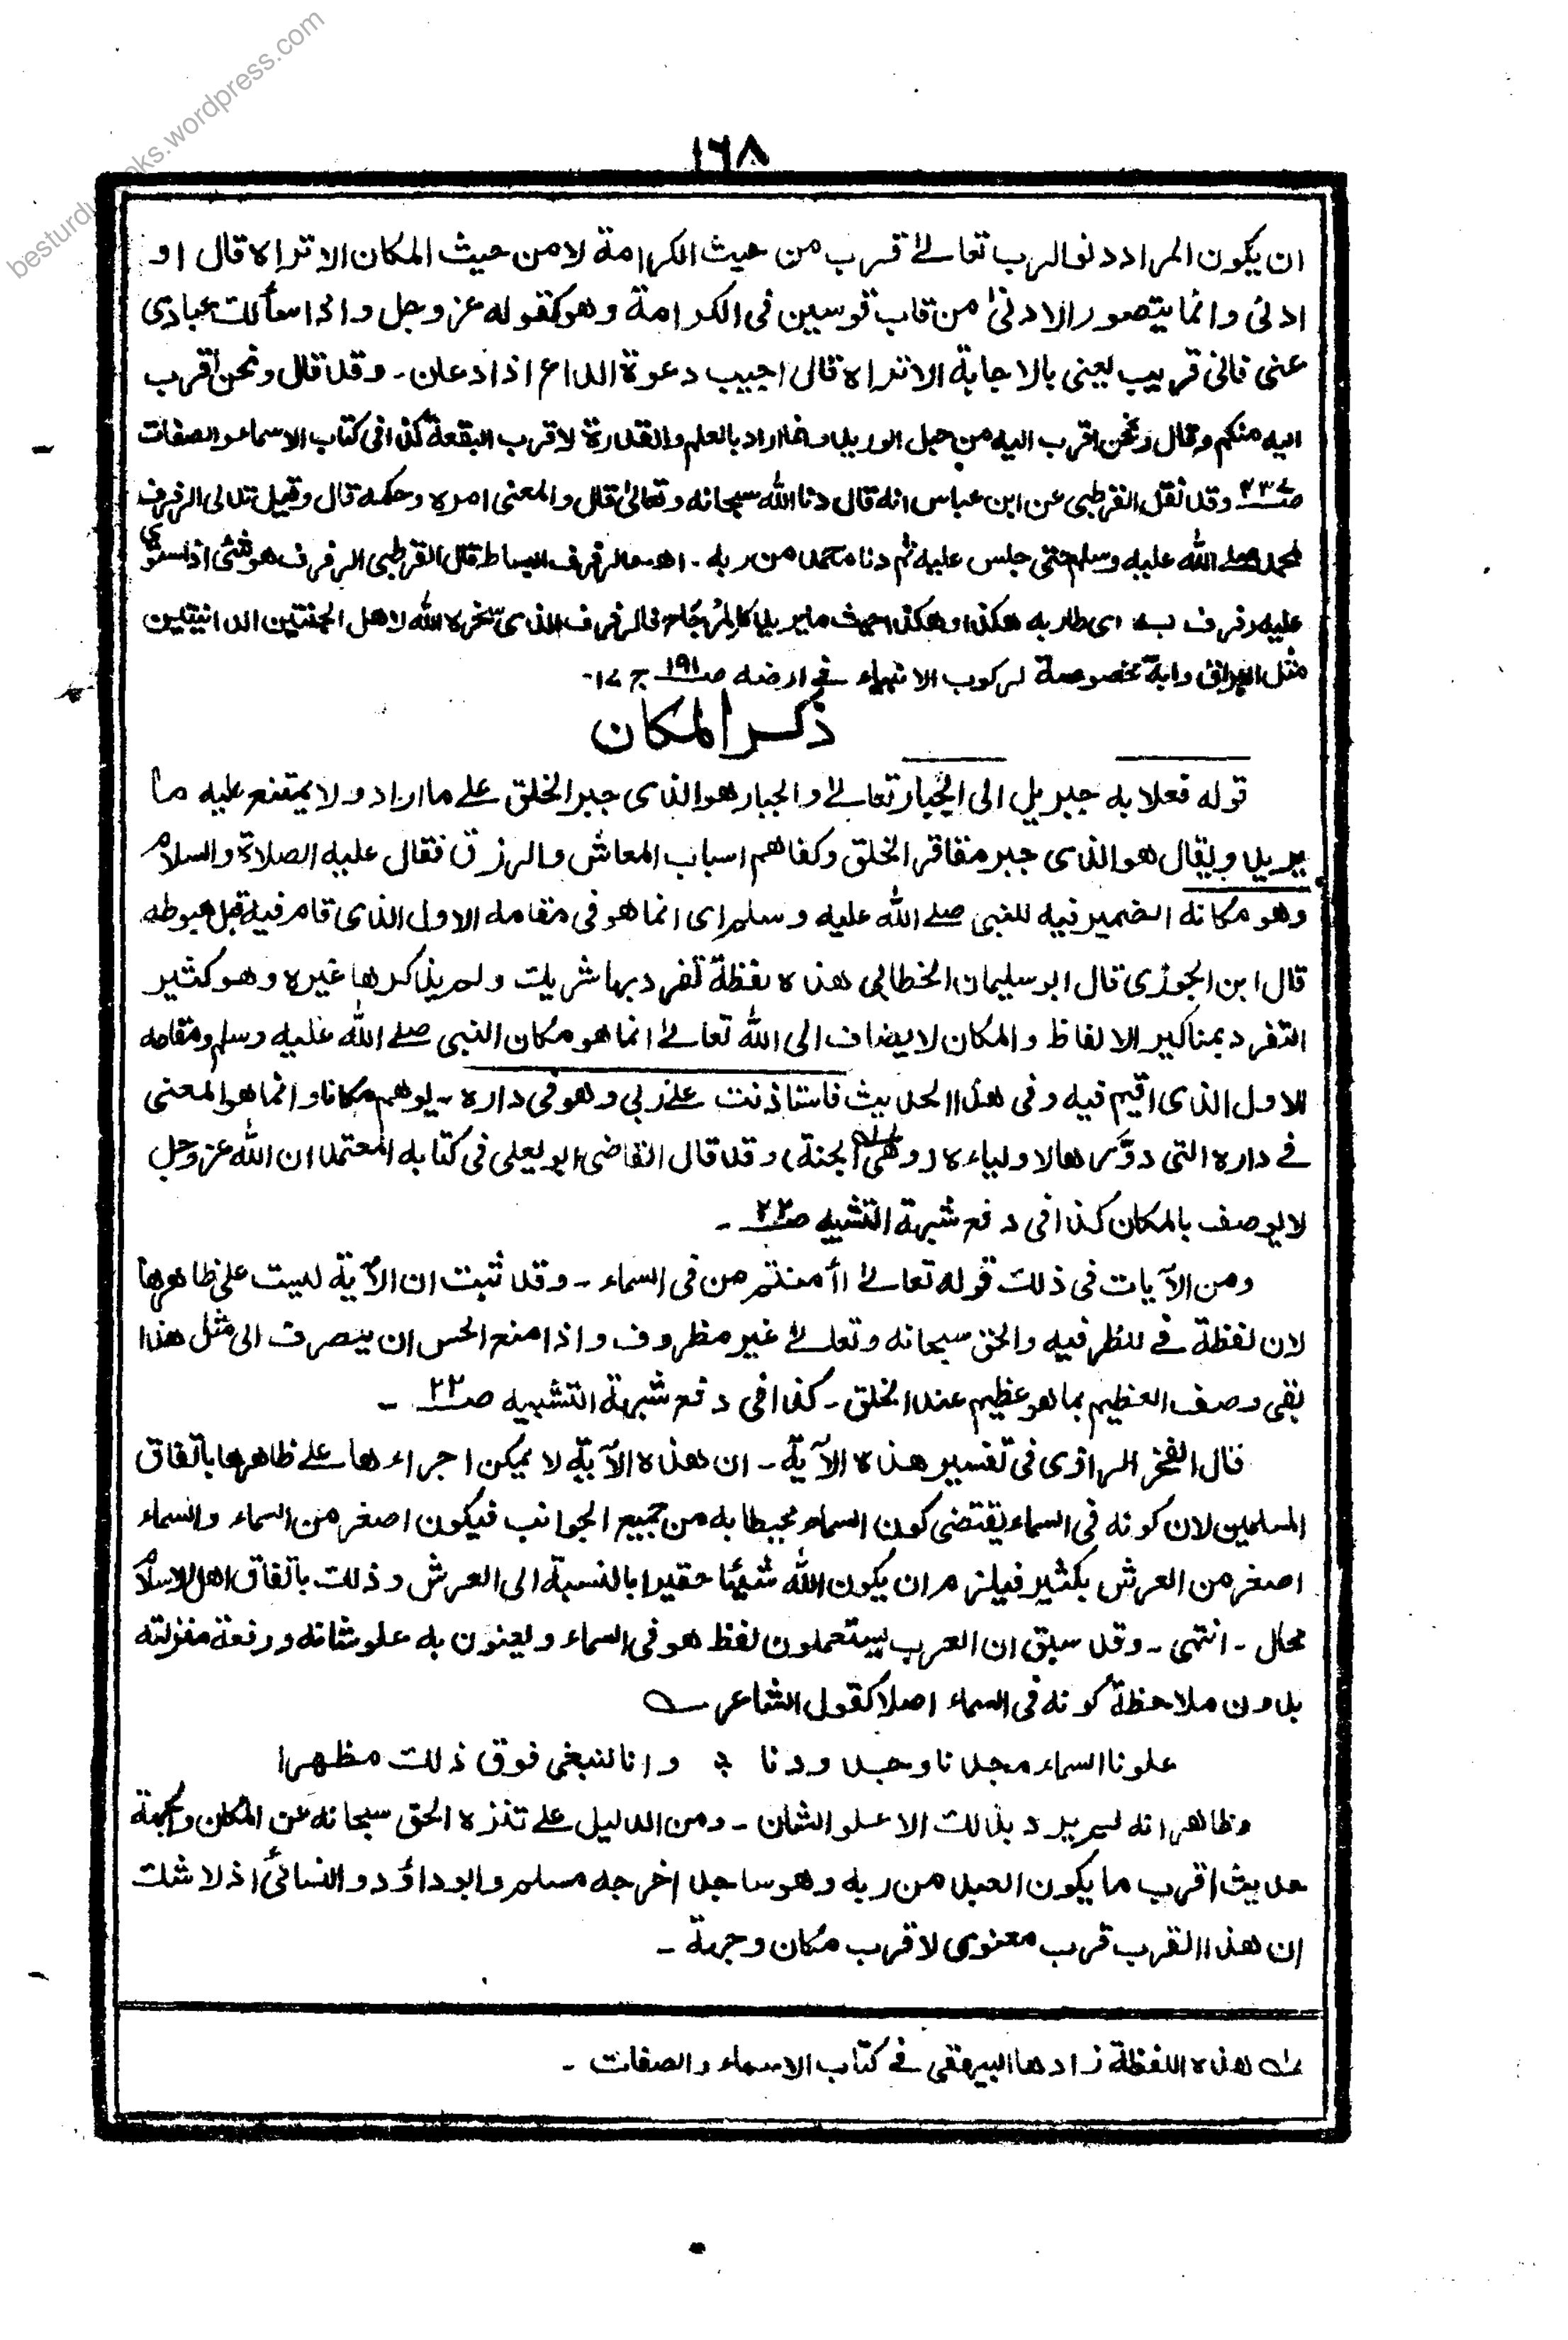 besturdubooks.wordpress.com
١٦٨
ان يكون المراد دنو الرب تعالےٰ قرب من حيث الكرامة لا من حيث المكان الا تراه قال او
ادنیٰ وانما يتصور الادنیٰ من قاب قوسين فی الكرامة وهو كقوله عز وجل واذا سألك عبادی
عنی فانی قريب يعنی بالاجابة الا تراه قال اجيب دعوة الداع اذا دعان۔ وقد قال ونحن اقرب
اليه منكم وقال ونحن اقرب اليه من حبل الوريد وانما اراد بالعلم والقدرة لا قرب البقعة كذا فی كتاب الاسماء والصفات
وقد نقل القرطبی عن ابن عباس انه قال دنا الله سبحانه وتعالیٰ قال والمعنی امره وحكمه قال وقيل تدلی الرفرف
لمحمد صلے الله عليه وسلم حتی جلس عليه ثم دنا محمد من ربه۔ اھ والرفرف البساط قال القرطبی الرفرف هو شئ اذا استوی
عليه رفرف به ای طار به هكذا وهكذا حيث ما يريد كالمرجاح فالرفرف الذی سخره الله لاهل الجنتين الدانيتين
مثل البراق دابة مخصوصة لركوب الانبياء فے ارضه صـ١٩١ ج ١٧۔
ذكر المكان
قوله فعلا به جبريل الی الجبار تعالےٰ والجبار هو الذی جبر الخلق علے ما اراد ولا يمتنع عليه ما
يريد ويقال هو الذی جبر مفاقر الخلق وكفاهم اسباب المعاش والرزق فقال عليه الصلاة والسلام
وهو مكانه الضمير فيه للنبی صلے الله عليه وسلم ای انما هو فی مقامه الاول الذی قام فيه قبل هبوطه
قال ابن الجوزی قال ابو سليمان الخطابی هذه لفظة تفرد بها شريك ولم يذكرها غيره وهو كثير
التفرد بمناكير الالفاظ والمكان لا يضاف الی الله تعالےٰ انما هو مكان النبی صلے الله عليه وسلم ومقامه
الاول الذی اقيم فيه وفی هذا الحديث فاستاذنت علے ربی وهو فی داره۔ يوهم مكانا وانما هو المعنی
فے داره التی دوّرها لاولياءه (وهی الجنة) وقد قال القاضی ابو يعلی فی كتابه المعتمد ان الله عز وجل
لا يوصف بالمكان كذا فی دفع شبهة التشبيه صـ٢٢ـ۔
ومن الآيات فی ذلك قوله تعالےٰ أأمنتم من فی السماء۔ وقد ثبت ان الآية ليست علی ظاهرها
لان لفظة فے للظرفيه والحق سبحانه وتعالےٰ غير مظروف واذا منع الحس ان يتصرف الی مثل هذا
بقی وصف العظيم بما هو عظيم عند الخلق۔ كذا فی دفع شبهة التشبيه صـ٢٢ـ۔
قال الفخر الرازی فی تفسير هذه الآية۔ ان هذه الآية لا يمكن اجراءها علے ظاهرها باتفاق
المسلمين لان كونه فی السماء يقتضی كون السماء محيطا به من جميع الجوانب فيكون اصغر من السماء والسماء
اصغر من العرش بكثير فيلزم ان يكون الله شيئا حقيرا بالنسبة الی العرش وذلك باتفاق اهل الاسلام
محال۔ انتهی۔ وقد سبق ان العرب يستعملون لفظ هو فی السماء ويعنون به علو شانه ورفعة منزلته
بدون ملاحظة كونه فی السماء اصلا كقول الشاعر ؎
علونا السماء مجدنا وجدودنا ۞ وانا لنبغی فوق ذلك مظهرا
وظاهر انه لم يرد بذالك الا علو الشان۔ ومن الدليل علے تنزه الحق سبحانه عن المكان والجهة
حديث اقرب ما يكون العبد من ربه وهو ساجد اخرجه مسلم وابو داؤد والنسائی اذ لا شك
ان هذا القرب قرب معنوی لا قرب مكان وجهة۔
عـه هذه اللفظة زادها البيهقی فے كتاب الاسماء والصفات۔